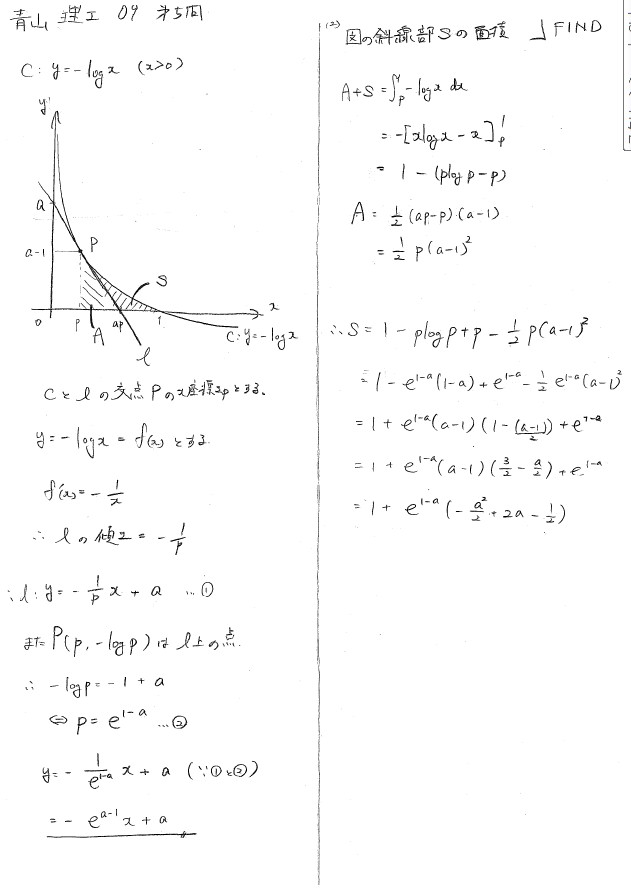 青山 理工 09 第5問
C: y=-log x (x>0)
y
a
a-1
P
S
x
0
p
A
ap
1
l
C: y=-log x
Cとlの交点Pのx座標をpとする、
y=-log x = f(x) とする
f'(x)=-1/x
∴ lの傾き = -1/p
∴ l: y = -1/p x + a …①
また P(p, -log p) は l上の点
∴ -log p = -1 + a
⇔ p = e^{1-a} …②
y = -1/e^{1-a} x + a (∵①と②)
= -e^{a-1} x + a
(2) 図の斜線部Sの面積 」FIND
A+S = ∫_p^1 -log x dx
= -[x log x - x]_p^1
= 1 - (p log p - p)
A = 1/2 (ap-p)·(a-1)
= 1/2 p(a-1)^2
∴ S = 1 - p log p + p - 1/2 p(a-1)^2
= 1 - e^{1-a}(1-a) + e^{1-a} - 1/2 e^{1-a}(a-1)^2
= 1 + e^{1-a}(a-1)(1 - (a-1)/2) + e^{1-a}
= 1 + e^{1-a}(a-1)(3/2 - a/2) + e^{1-a}
= 1 + e^{1-a}(-a^2/2 + 2a - 1/2)